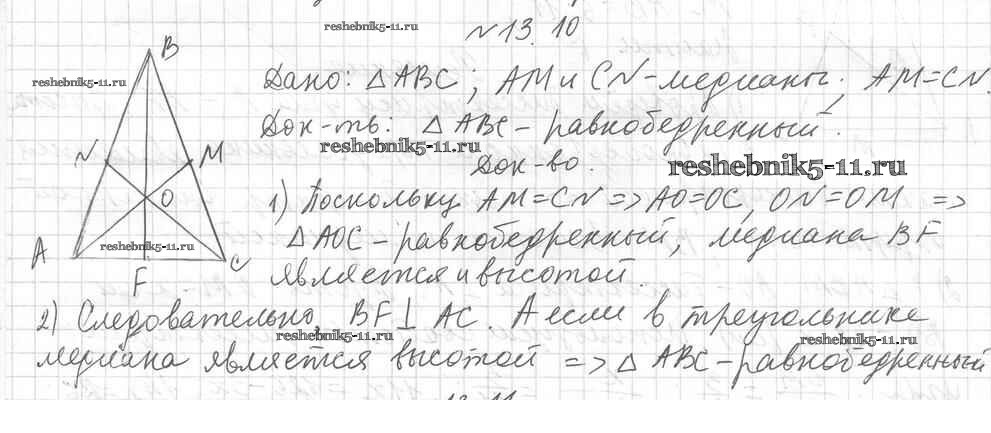 reshebnik5-11.ru
№ 13.10
reshebnik5-11.ru
B
Дано: △ABC; AM и CN - медианы; AM=CN.
Док-ть: △ABC - равнобедренный.
reshebnik5-11.ru
Док-во.
reshebnik5-11.ru
N
M
O
1) Поскольку AM=CN => AO=OC, ON=OM =>
△AOC - равнобедренный, медиана BF
reshebnik5-11.ru
A
C
F
является и высотой.
2) Следовательно, BF⊥AC. А если в треугольнике
reshebnik5-11.ru
reshebnik5-11.ru
медиана является высотой => △ABC - равнобедренный